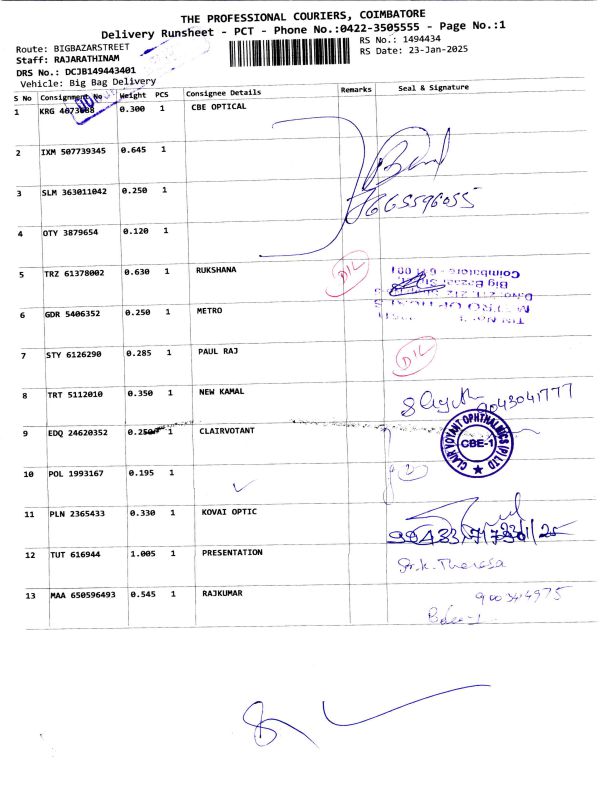 THE PROFESSIONAL COURIERS, COIMBATORE
Delivery Runsheet - PCT - Phone No.:0422-3505555 - Page No.:1
Route: BIGBAZARSTREET
RS No.: 1494434
Staff: RAJARATHINAM
RS Date: 23-Jan-2025
DRS No.: DCJB149443401
Vehicle: Big Bag Delivery
S No Consignment No Weight PCS Consignee Details Remarks Seal & Signature
1 KRG 0.300 1 CBE OPTICAL
2 IXM 507739345 0.645 1
3 SLM 363011042 0.250 1
4 OTY 3879654 0.120 1
5 TRZ 61378002 0.630 1 RUKSHANA D/L
Coimbatore - 641 001
Big Bazaar
6 GDR 5406352 0.250 1 METRO
7 STY 6126290 0.285 1 PAUL RAJ D/L
8 TRT 5112010 0.350 1 NEW KAMAL
9043041777
9 EDQ 24620352 0.250 1 CLAIRVOTANT
CLAIR VOYANT OPHTHALMICS (P) LTD
CBE-1
10 POL 1993167 0.195 1
11 PLN 2365433 0.330 1 KOVAI OPTIC
12 TUT 616944 1.005 1 PRESENTATION
Sr.K. Theresa
13 MAA 650596493 0.545 1 RAJKUMAR